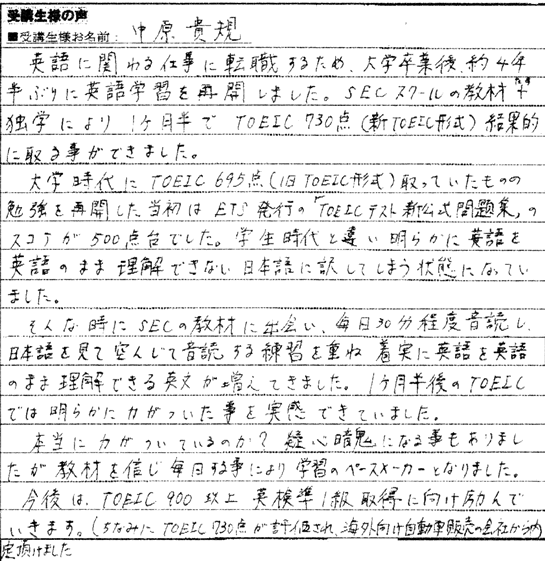 受講生様の声
■受講生様お名前: 中原 貴規
英語に関わる仕事に転職するため、大学卒業後、約4年
半ぶりに英語学習を再開しました。SECスクールの教材+
独学により 1ヶ月半で TOEIC 730点(新TOEIC形式)結果的
に取る事ができました。
大学時代に TOEIC 695点(旧TOEIC形式)取っていたものの
勉強を再開した当初は ETS発行の「TOEICテスト新公式問題集」の
スコアが500点台でした。学生時代と違い明らかに英語を
英語のまま理解できない日本語に訳してしまう状態になってい
ました。
そんな時にSECの教材に出会い、毎日30分程度音読し、
日本語を見て空んじて音読する練習を重ね 着実に英語を英語
のまま理解できる英文が増えてきました。1ヶ月半後のTOEIC
では明らかに力がついた事を実感できていました。
本当に力がついているのか?疑心暗鬼になる事もありまし
たが教材を信じ毎日する事により学習のペースメーカーとなりました。
今後は、TOEIC 900以上 英検準1級取得に向け励んで
いきます。(ちなみにTOEIC 730点が評価され、海外向け自動車販売の会社から内
定頂けました